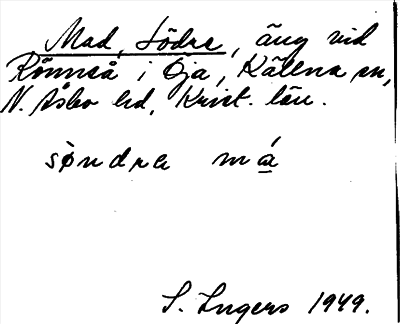 Mad, Södre, äng vid
Rönneå i Öja, Källna sn,
N. Åsbo hd, Krist. län.
søndre má
S. Ingers 1949.